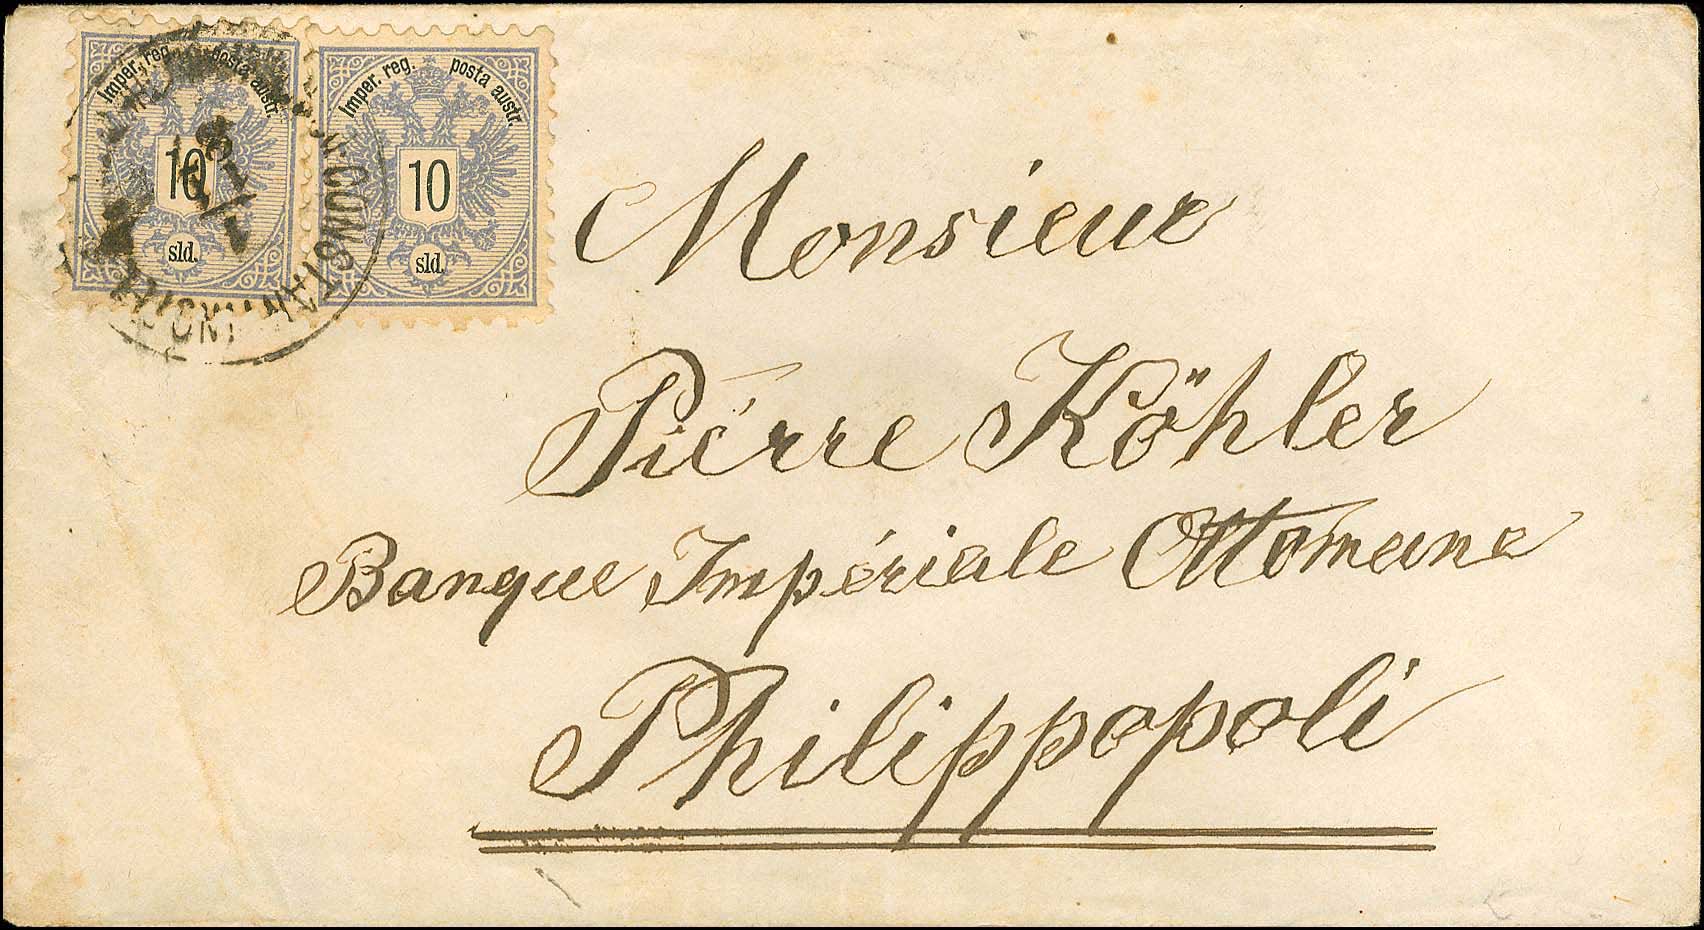 Imper. reg. posta austr.
10
sld.
Imper. reg. posta austr.
10
sld.
Monsieur
Piérre Köhler
Banque Impériale Ottomane
Philippopoli